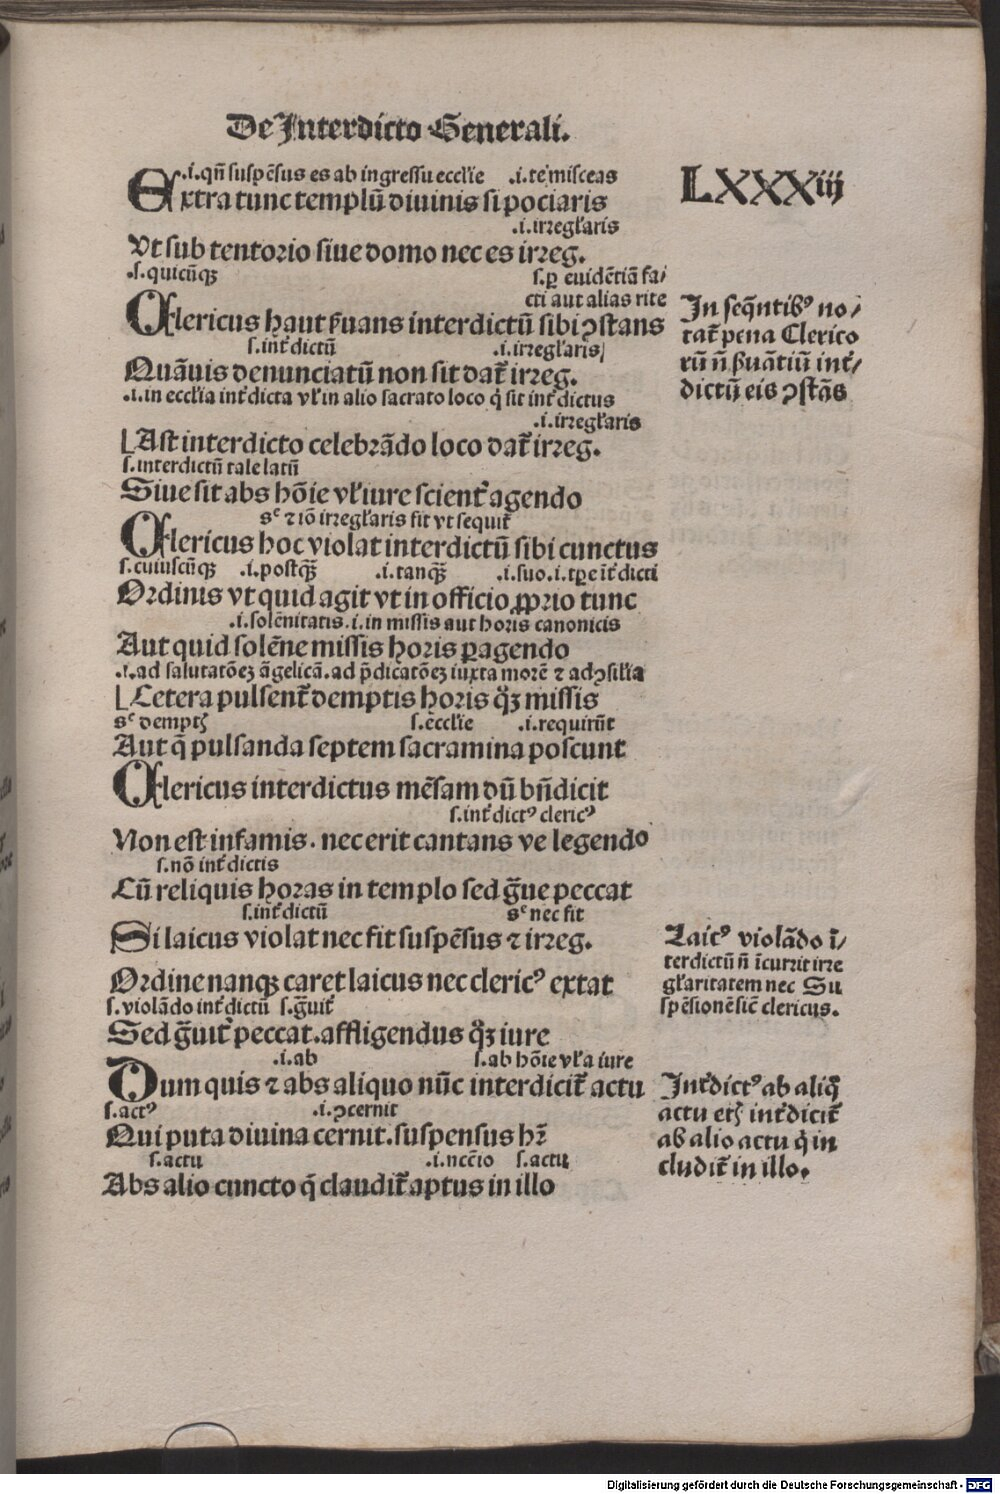 De Interdicto Generali.
LXXXiij
.i.qn̄ suspēsus es ab ingressu eccl'ie .i.te misceas
Extra tunc templū diuinis si pociaris
.i.irregl'aris
Ut sub tentorio siue domo nec es irreg.
.s.quicūqꝫ s.ꝑ euidētiā fa/
cti aut alias rite
Clericus haut ẜuans interdictū sibi ꝯstans
s.int̄dictū .i.irregl'aris
Quāuis denunciatū non sit dat̄ irreg.
.i.in eccl'ia int̄dicta vl' in alio sacrato loco q̇ sit int̄dictus
.i.irregl'aris
Ast interdicto celebrādo loco dat̄ irreg.
s.interdictū tale latū
Siue sit abs hōie vl' iure scient̄ agendo
sꝫ ⁊ iō irregl'aris fit vt sequit̄
Clericus hoc violat interdictū sibi cunctus
s.cuiuscūqꝫ .i.postqꝫ̄ .i.tanqꝫ̄ .i.suo.i.tꝑe īt̄dicti
Ordinis vt quid agit vt in officio ꝓprio tunc
.i.solēnitatis.i.in missis aut horis canonicis
Aut quid solēne missis horis ꝑagendo
.i.ad salutatōeꝫ āgelicā.ad p̄dicatōeꝫ iuxta morē ⁊ ad ꝯsil'ia
Cetera pulsent̄ demptis horis qꝫ̄ missis
s.ēccl'ie .i.requirūt
Aut q̄ pulsanda septem sacramina poscunt
Clericus interdictus mēsam dū bn̄dicit
s.int̄dictꝰ clericꝰ
Non est infamis. nec erit cantans ve legendo
s.nō int̄dictis
Cū reliquis horas in templo sed ḡue peccat
s.int̄dictū sꝫ nec fit
Si laicus violat nec fit suspēsus ⁊ irreg.
Ordine nanqꝫ caret laicus nec clericꝰ extat
s.violādo int̄dictū s.ḡuit̄
Sed ḡuit̄ peccat.affligendus qꝫ̄ iure
.i.ab s.ab hōie vl' a iure
Dum quis ⁊ abs aliquo nūc interdicit̄ actu
s.actꝰ .i.ꝯcernit
Qui puta diuina cernit.suspensus hꝫ̄
s.actu s.actu
Abs alio cuncto q̄ claudit̄ aptus in illo
In seq̄ntibꝰ no/
tat̄ pena Clerico
rū n̄ ẜuātiū int̄/
dictū eis ꝯstās
Laicꝰ violādo ī/
terdictū n̄ īcurrit irre
gl'aritatem nec Su
spēsionē sic̄ clericus.
Int̄dictꝰ ab aliq̄
actu etꝫ int̄dicit̄
ab alio actu q̇ in
cludit̄ in illo.
Digitalisierung gefördert durch die Deutsche Forschungsgemeinschaft - DFG